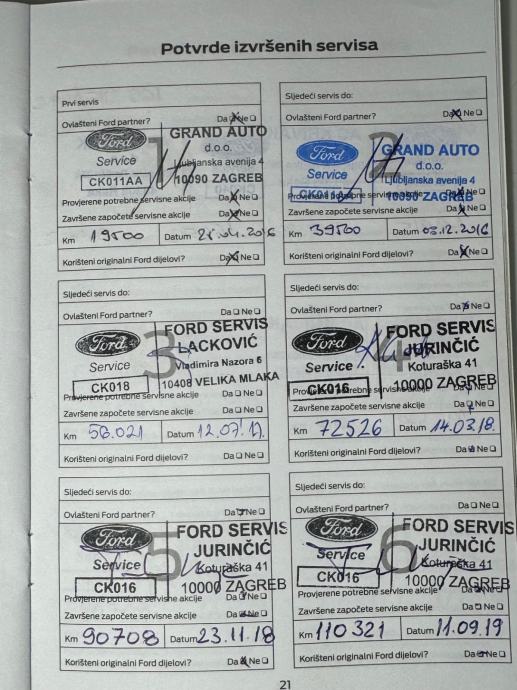 Potvrde izvršenih servisa
Prvi servis
Ovlašteni Ford partner? Da Ne
1
Ford
Service
CK011AA
GRAND AUTO
d.o.o.
Ljubljanska avenija 4
10090 ZAGREB
Provjerene potrebne servisne akcije Da Ne
Završene započete servisne akcije Da Ne
Km 19500 Datum 21.04.2016
Korišteni originalni Ford dijelovi? Da Ne
Sljedeći servis do:
Ovlašteni Ford partner? Da Ne
2
Ford
Service
CK011AA
GRAND AUTO
d.o.o.
Ljubljanska avenija 4
10090 ZAGREB
Provjerene potrebne servisne akcije Da Ne
Završene započete servisne akcije Da Ne
Km 39500 Datum 03.12.2016
Korišteni originalni Ford dijelovi? Da Ne
Sljedeći servis do:
Ovlašteni Ford partner? Da Ne
3
Ford
Service
CK018
FORD SERVIS
LACKOVIĆ
Vladimira Nazora 6
10408 VELIKA MLAKA
Provjerene potrebne servisne akcije Da Ne
Završene započete servisne akcije Da Ne
Km 56.021 Datum 12.07.17.
Korišteni originalni Ford dijelovi? Da Ne
Sljedeći servis do:
Ovlašteni Ford partner? Da Ne
4
Ford
Service
CK016
FORD SERVIS
JURINČIĆ
Koturaška 41
10000 ZAGREB
Provjerene potrebne servisne akcije Da Ne
Završene započete servisne akcije Da Ne
Km 72526 Datum 14.03.18.
Korišteni originalni Ford dijelovi? Da Ne
Sljedeći servis do:
Ovlašteni Ford partner? Da Ne
5
Ford
Service
CK016
FORD SERVIS
JURINČIĆ
Koturaška 41
10000 ZAGREB
Provjerene potrebne servisne akcije Da Ne
Završene započete servisne akcije Da Ne
Km 90708 Datum 23.11.18
Korišteni originalni Ford dijelovi? Da Ne
Sljedeći servis do:
Ovlašteni Ford partner? Da Ne
6
Ford
Service
CK016
FORD SERVIS
JURINČIĆ
Koturaška 41
10000 ZAGREB
Provjerene potrebne servisne akcije Da Ne
Završene započete servisne akcije Da Ne
Km 110321 Datum 11.09.19
Korišteni originalni Ford dijelovi? Da Ne
21